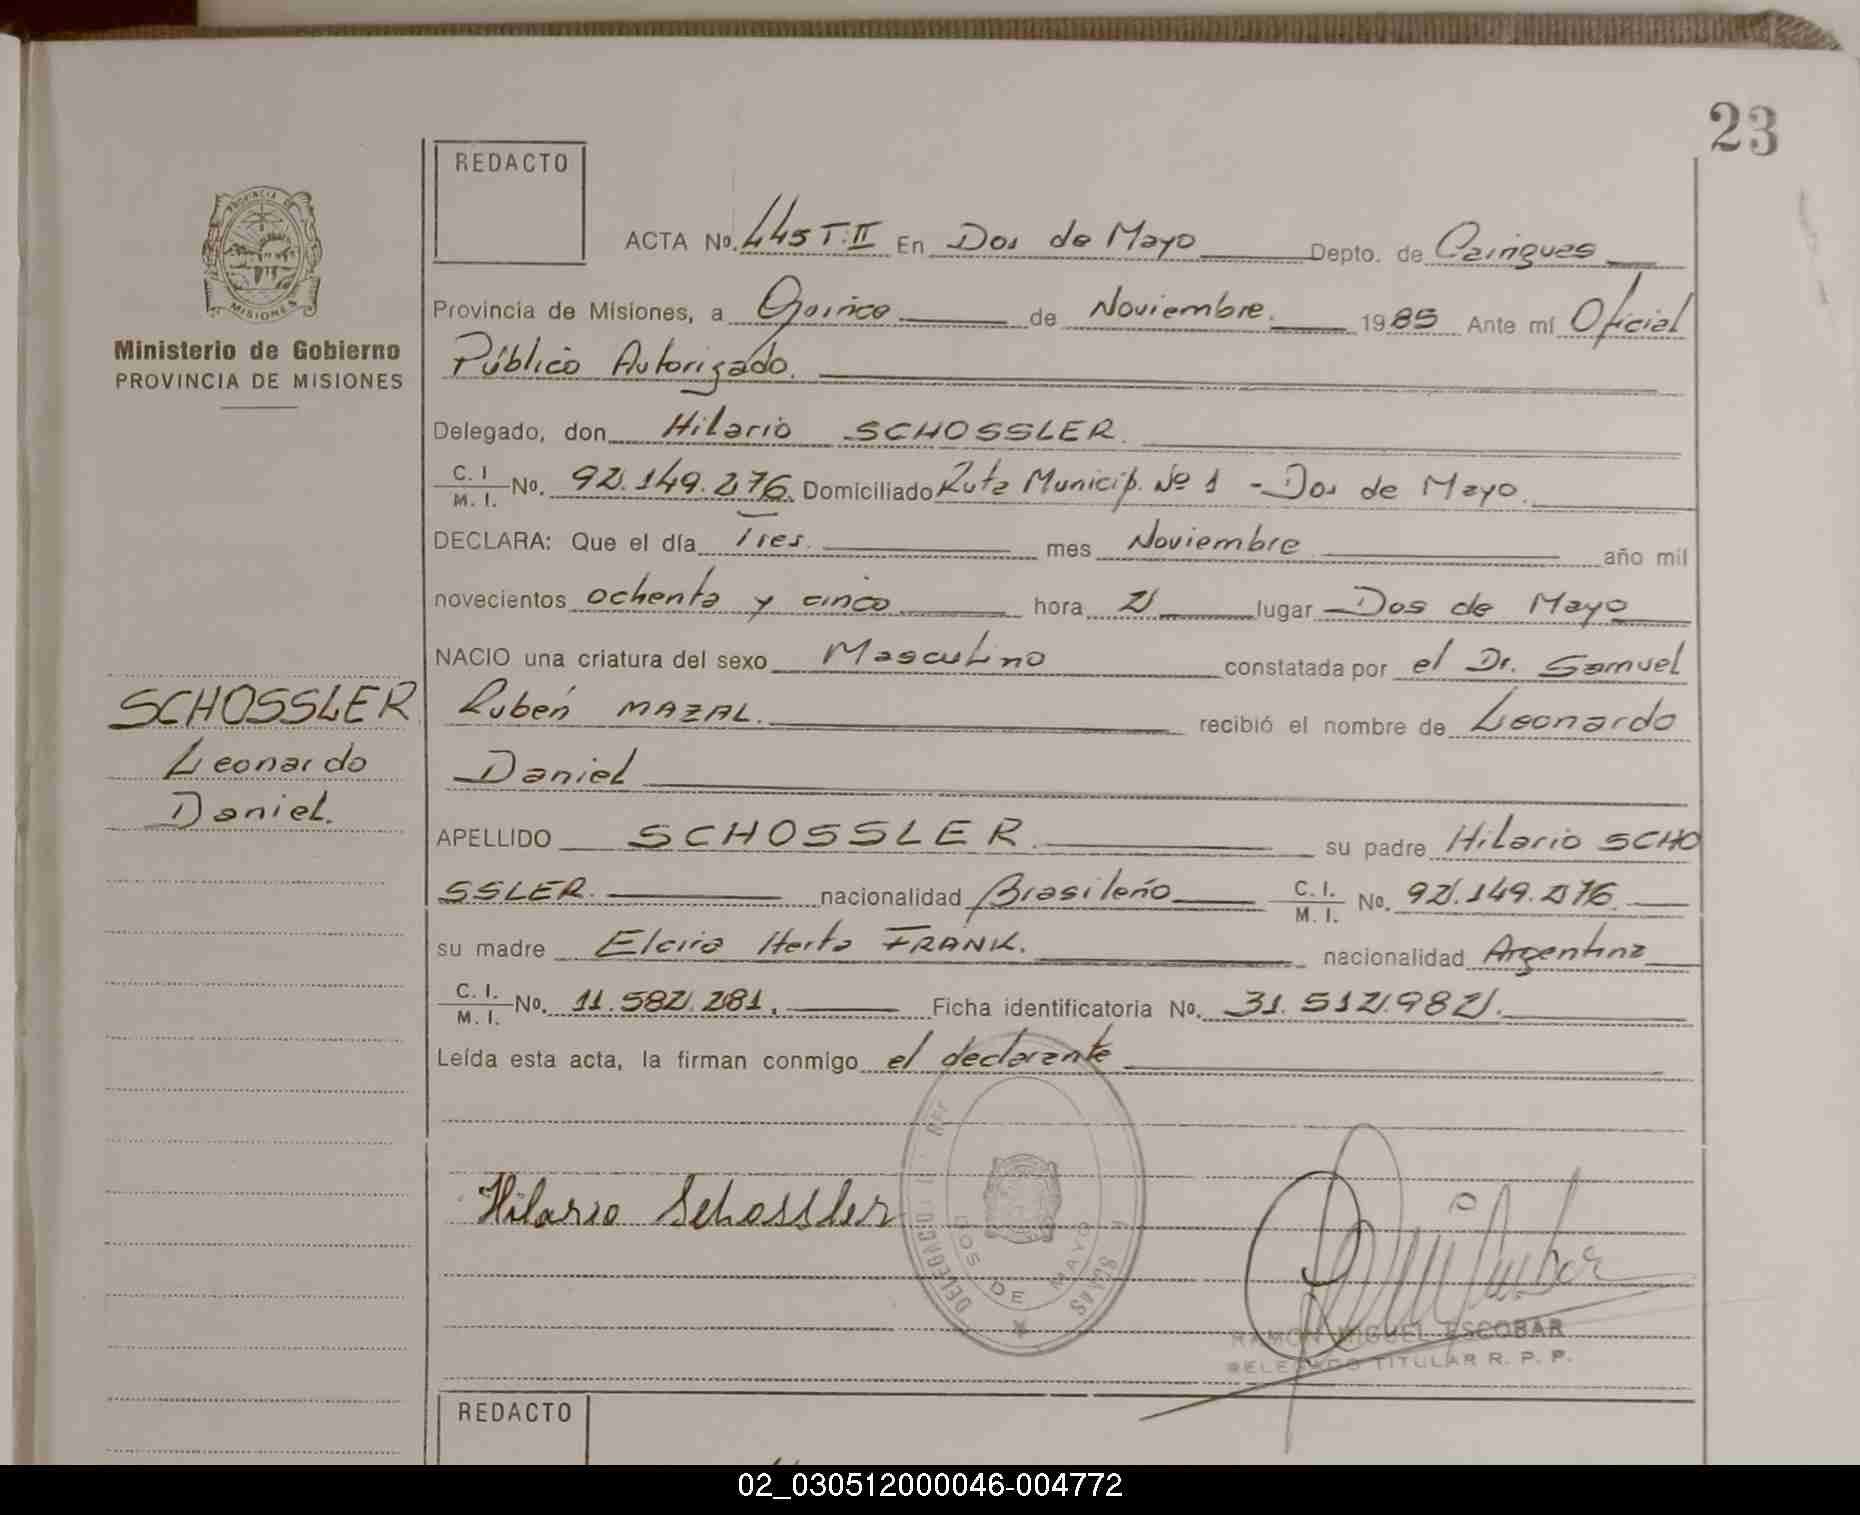 23
REDACTO
ACTA No. 445 T. II En Dos de Mayo Depto. de Cainguas
PROVINCIA DE
MISIONES
Provincia de Misiones, a Quince de Noviembre. 1985 Ante mí Oficial
Ministerio de Gobierno
PROVINCIA DE MISIONES
Público Autorizado.
Delegado, don Hilario SCHOSSLER.
C. I. / M. I. No. 92.149.276. Domiciliado Ruta Municip. Nº 1 - Dos de Mayo.
DECLARA: Que el día Tres. mes Noviembre año mil
novecientos ochenta y cinco hora 2 lugar Dos de Mayo
NACIO una criatura del sexo Masculino constatada por el Dr. Samuel
Rubén MAZAL. recibió el nombre de Leonardo
Daniel
SCHOSSLER
Leonardo
Daniel.
APELLIDO SCHOSSLER. su padre Hilario SCHO
SSLER. nacionalidad Brasileño C. I. / M. I. No. 92.149.276.
su madre Elcira Herta FRANK. nacionalidad Argentina
C. I. / M. I. No. 11.582.281. Ficha identificatoria No. 31.512.982.
Leída esta acta, la firman conmigo el declarante
Hilario Schossler
DELEGACION
DOS DE MAYO
RAMON MIGUEL ESCOBAR
DELEGADO TITULAR R. P. P.
REDACTO
02_030512000046-004772